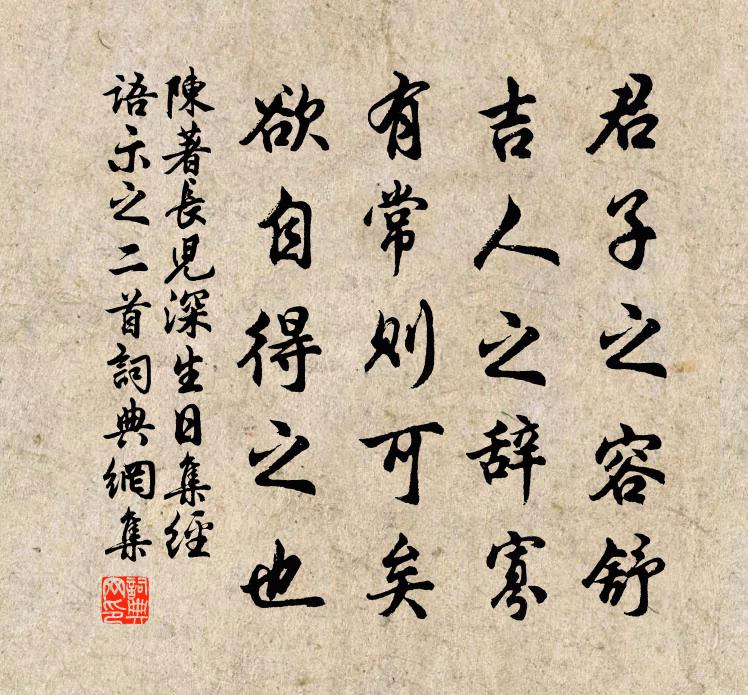 君子之容舒
吉人之辞寡
有常則可矣
欲自得之也
陳著長児深生日集經
語示之二首詞典網集
詞典网印